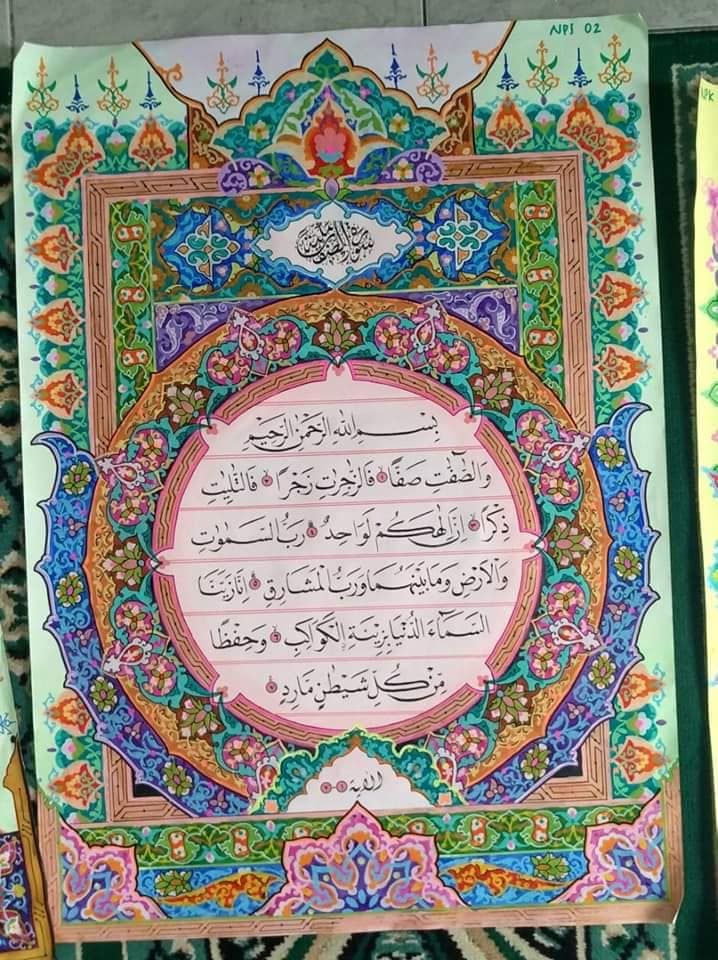 NPS 02
سورة الصافات مكية
بِسْمِ اللهِ الرَّحْمٰنِ الرَّحِيْمِ
وَالصّٰٓفّٰتِ صَفًّا ۝١ فَالزّٰجِرٰتِ زَجْرًا ۝٢ فَالتّٰلِيٰتِ
ذِكْرًا ۝٣ اِنَّ اِلٰهَكُمْ لَوَاحِدٌ ۝٤ رَبُّ السَّمٰوٰتِ
وَالْاَرْضِ وَمَا بَيْنَهُمَا وَرَبُّ الْمَشَارِقِ ۝٥ اِنَّا زَيَّنَّا
السَّمَآءَ الدُّنْيَا بِزِيْنَةِ الْكَوَاكِبِ ۝٦ وَحِفْظًا
مِّنْ كُلِّ شَيْطٰنٍ مَّارِدٍ ۝٧
الاية ١-٧